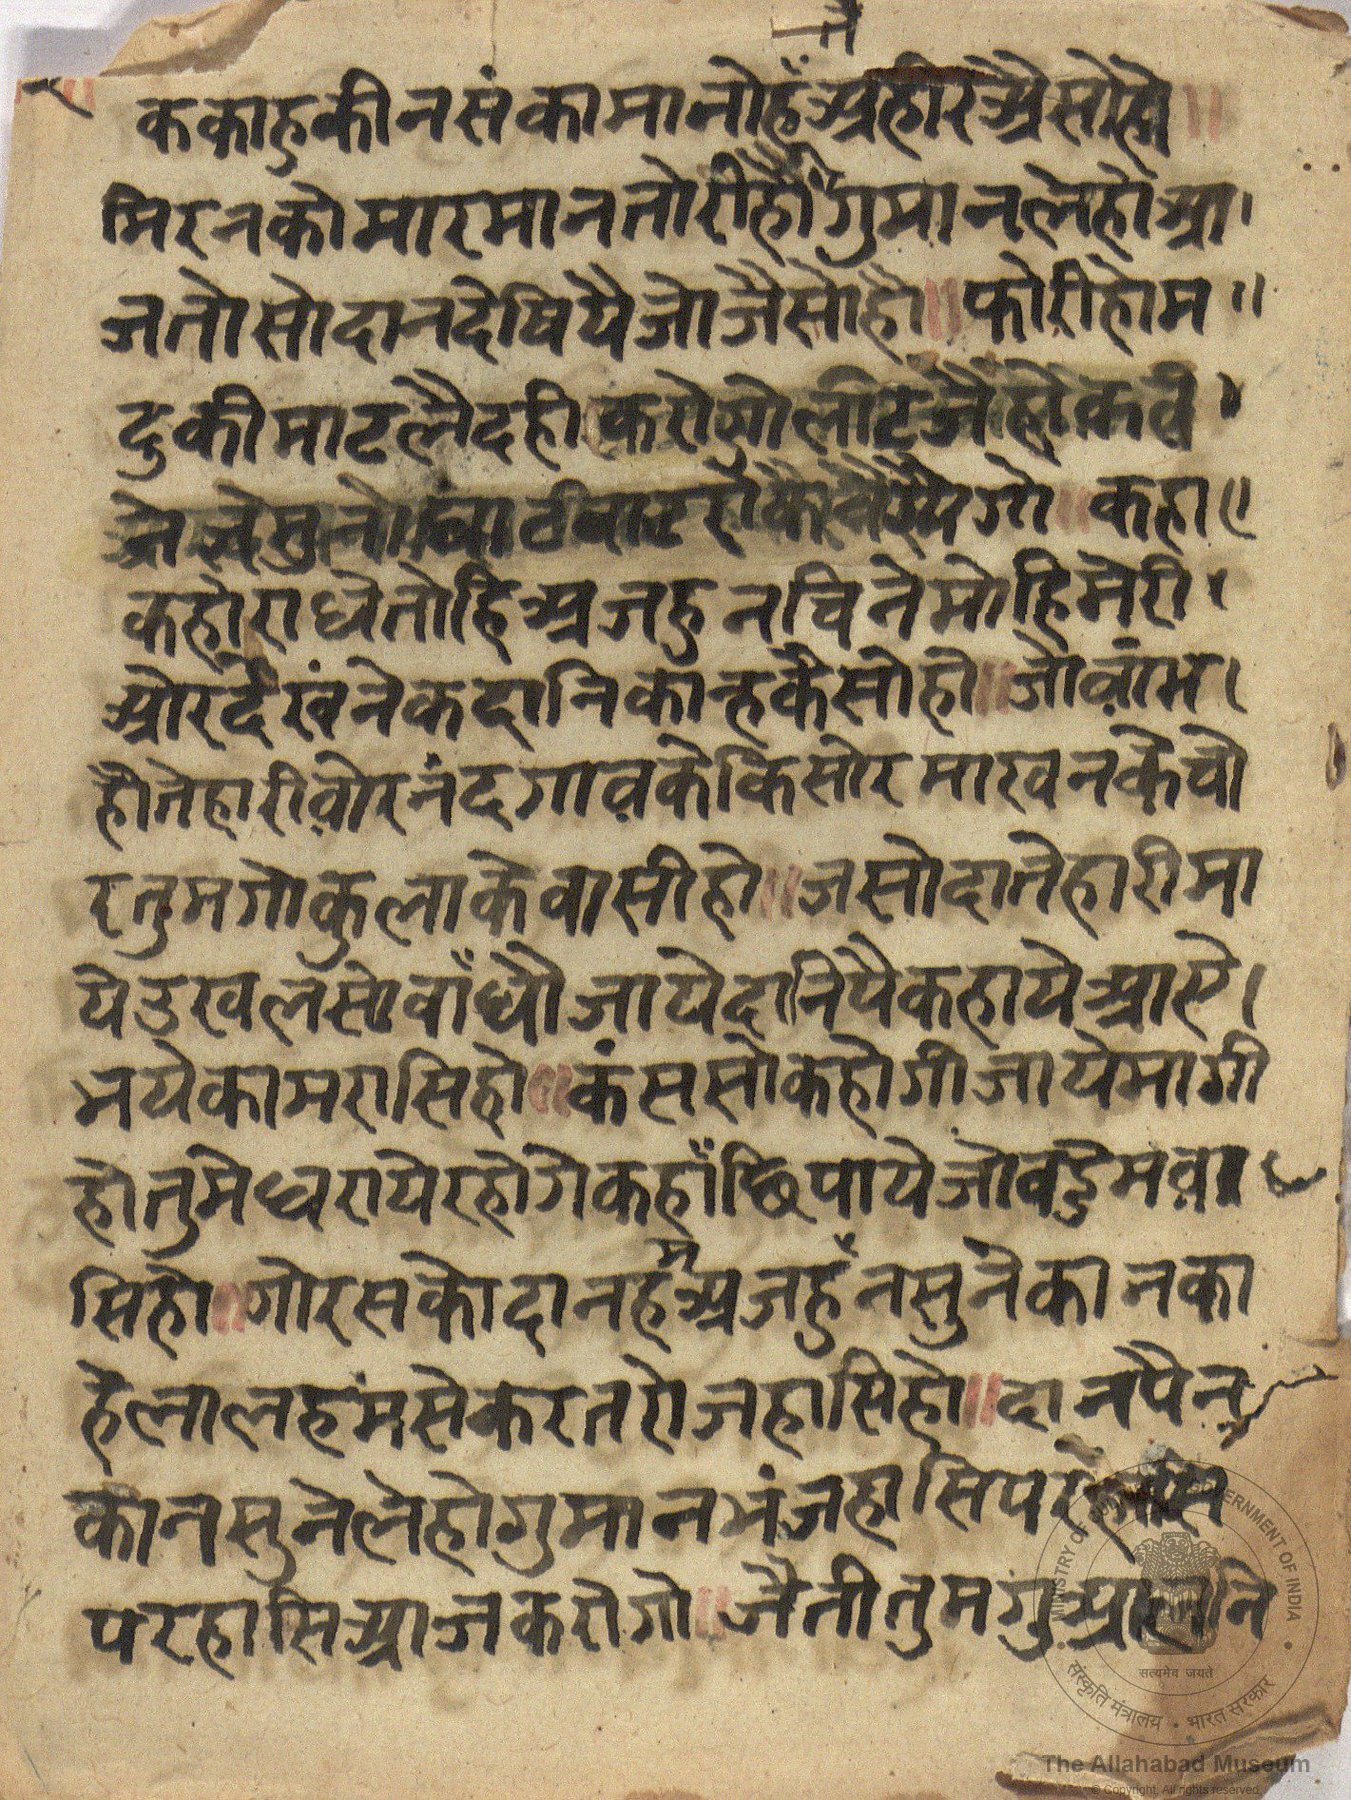 ककाहुकीनसंकामानोहैंअहीरअैसोहो॥
मिरनकोमारमानतोरीहौंगुमानलेहोआ।
जतोसोदानदेषियैजोजैसोहौ॥फोरीहोम॥
दुकीमाटलैदहीकरोगो
कहा॥
कहोराधेतोहिअजहुनचिनेमोहिमेरी।
ओरदेखंनेकदानिकान्हकैसोहो॥जोव़ांम।
हौतेहारीव़ोरनंदगाव़केकिसोरमाखनकेचो
रतुमगोकुलाकेवासीहो॥जसोदातेहारीमा
येउखलसोवाँधौजायेदानिपैकहायेआऐ।
भयेकामरासिहो॥कंससोकहोगीजायेमागी
होतुमेधरायेरहोगेकहाँछिपायेजोवडेमव़ा
सिहो॥गोरसकोदानहमअजहुँनसुनेकानका
हेलालहमसेकरतरोजहासिहो॥दानपैन
कानसुनेलेहोगुमानभंजहासिपर
परहासिआजकरोगो॥जैतीतुमगुआलनि
MINISTRY OF CULTURE GOVERNMENT OF INDIA
सत्यमेव जयते
संस्कृति मंत्रालय • भारत सरकार
The Allahabad Museum
© Copyright, All rights reserved